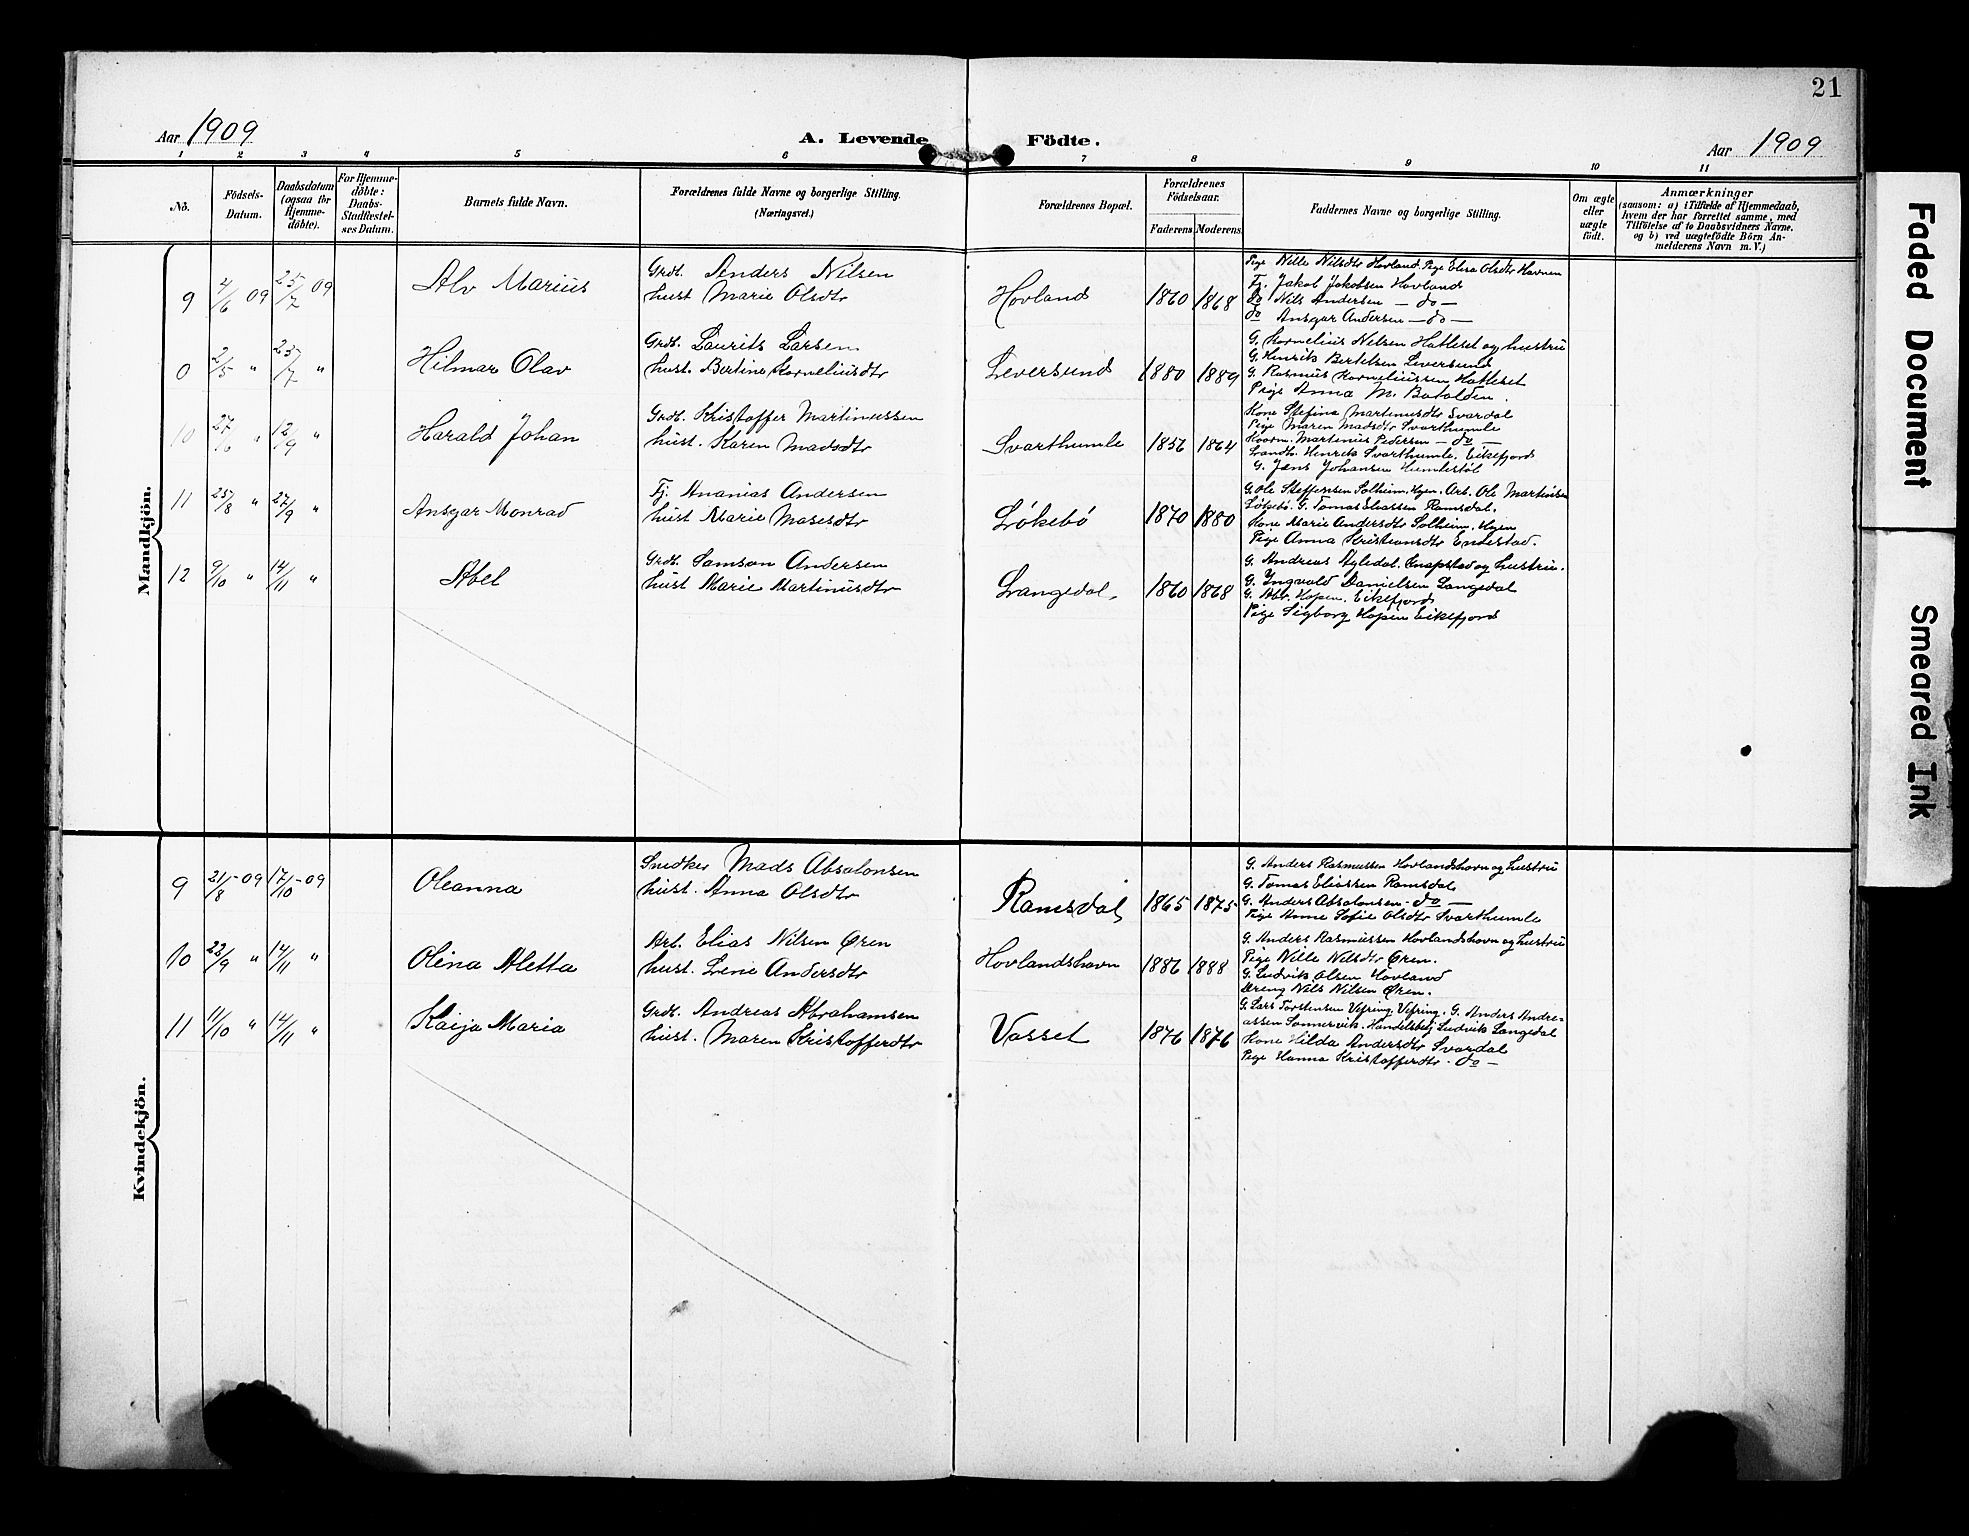 21
Aar 1909
A. Levende
Födte.
Aar 1909
1 2 3 4 5 6 7 8 9 10 11
No.
Födsels-
Datum.
Daabsdatum
(ogsaa for
Hjemme-
døbte).
For Hjemme-
døbte:
Daabs-
Stadfæstel-
ses Datum.
Barnets fulde Navn.
Forældrenes fulde Navne og borgerlige Stilling.
(Næringsvei.)
Forældrenes Bopæl.
Forældrenes
Födselsaar.
Faderens Moderens
Faddernes Navne og borgerlige Stilling.
Om ægte
eller
uægte
født.
Anmærkninger
(saasom: a) i Tilfælde af Hjemmedaab,
hvem der har forrettet samme, med
Tilföielse af to Daabsvidners Navne.
og b) ved uægtefödte Börn An-
melderens Navn m. V.)
Mandkjön.
9 4/6 09 25/7 09 Alv Marius
Grdb. Anders Nilsen
hust Marie Olsdtr
Hovland 1860 1868
Pige Nille Nilsdtr Hovland. Pige Elisa Olsdtr Havnen
Fj. Jakob Jakobsen Hovland
Do Nils Andersen — do —
do Ansgar Andersen — do —
0 2/5 " 25/7 " Hilmar Olav
Grdb. Laurits Larsen
hust. Bertine Korneliusdtr
Leversund 1880 1889
G. Kornelius Nilsen Hatleset og hustru
G. Henrik Bertelsen Leversund
G. Rasmus Korneliussen Hatleset
Pige Anna M. Batalden.
10 27/6 " 12/9 " Harald Johan
Grdb. Kristoffer Martinussen
hust. Karen Madsdtr
Svarthumle 1856 1864
Kone Stefina Martinusdtr Svardal
Pige Maren Madsdtr Svarthumle
Martinus Pedersen — do —
Landh. Henrik Svarthumle, Eikefjord
G. Jens Johansen Humlestøl
11 25/8 " 27/9 " Ansgar Monrad
Fj. Ananias Andersen
hust Marie Mosesdtr
Løkebø 1870 1880
G. Ole Steffensen Solheim, Hyen. Arb. Ole Martinsen
Løkebø. G. Tomas Eliassen Ramsdal.
Kone Marie Andersdtr Solheim, Hyen
Pige Anna Kristiansdtr Endestad.
12 9/10 " 14/11 " Abel
Grdb. Samson Andersen
hust Marie Martinusdtr
Langedal. 1860 1868
G. Andreas Knapstad og hustru.
G. Ingvald Danielsen Langedal
G. Abr. Hopen, Eikefjord
Pige Sigborg Hopen Eikefjord
Kvindekjön.
9 21/8 -09 17/10 -09 Oleanna
Snedker Mads Absalonsen
hust. Anna Olsdtr
Ramsdal 1865 1875
G. Anders Rasmussen Hovlandshavn og hustru
G. Tomas Eliassen Ramsdal
G. Anders Absalonsen - do —
Pige Anne Sofie Olsdtr Svarthumle
10 22/9 " 14/11 " Olina Aletta
Arb. Elias Nilsen Øren
hust. Lene Andersdtr
Hovlandshavn 1886 1888
G. Anders Rasmussen Hovlandshavn og hustru
Pige Nille Nilsdtr Øren.
G. Ludvik Olsen Hovland
Dreng Nils Nilsen Øren.
11 11/10 " 14/11 " Kaija Maria
Grdb. Andreas Abrahamsen
hust. Maren Kristofferdtr
Vasset 1876 1876
G. Lars Torstensen Vefring, Vefring. G. Anders Andre-
assen Sønnervik. Handelsbetj Ludvik Langedal
Kone Hilda Andersdtr Svardal
Pige Hanna Kristofferdtr - do —
Faded Document
Smeared Ink